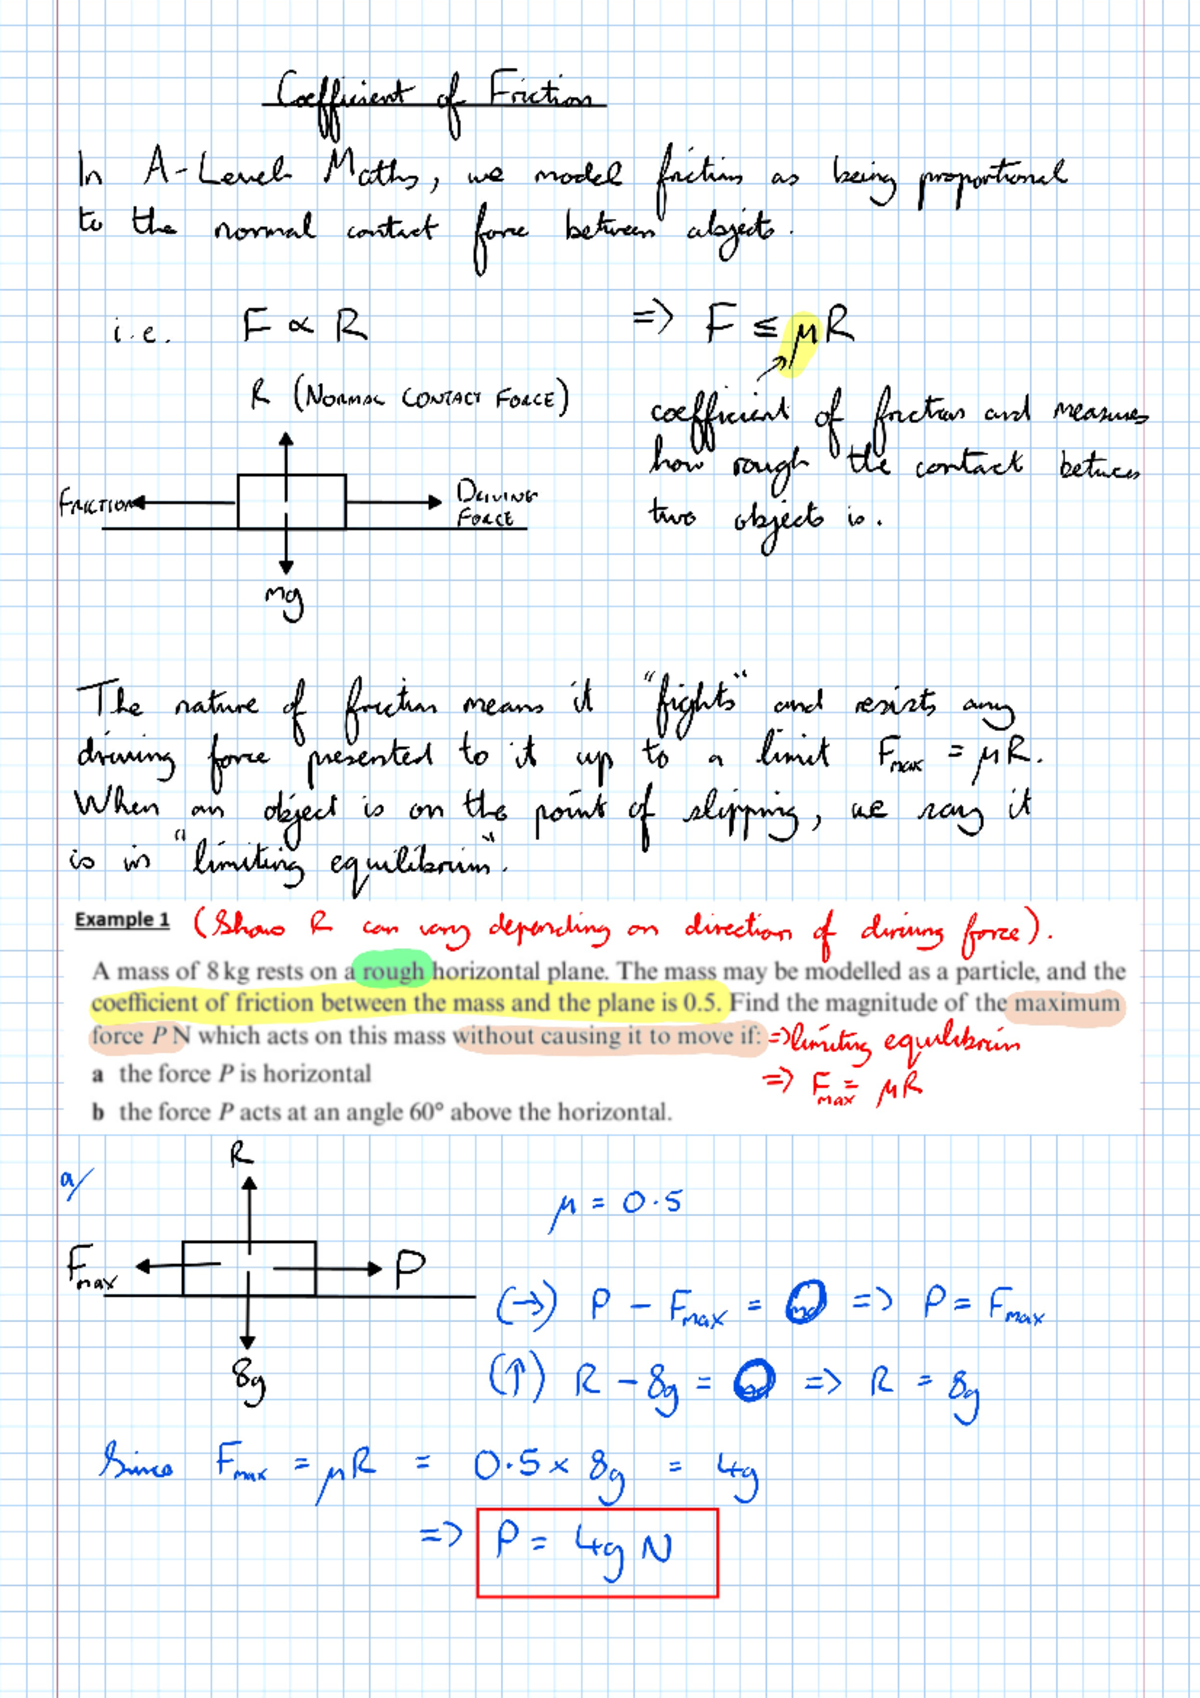 Coefficient of Friction
In A-Level Maths, we model friction as being proportional
to the normal contact force between objects.
i.e. F ∝ R => F ≤ μR
R (NORMAL CONTACT FORCE)
coefficient of friction and measures
how rough the contact between
two objects is.
FRICTION
DRIVING
FORCE
mg
The nature of friction means it "fights" and resists any
driving force presented to it up to a limit Fmax = μR.
When an object is on the point of slipping, we say it
is in "limiting equilibrium".
Example 1 (Shows R can vary depending on direction of driving force).
A mass of 8 kg rests on a rough horizontal plane. The mass may be modelled as a particle, and the
coefficient of friction between the mass and the plane is 0.5. Find the magnitude of the maximum
force P N which acts on this mass without causing it to move if: => limiting equilibrium
a the force P is horizontal => Fmax = μR
b the force P acts at an angle 60° above the horizontal.
a/
R
μ = 0.5
Fmax
P
(→) P - Fmax = 0 => P = Fmax
8g
(↑) R - 8g = 0 => R = 8g
Since Fmax = μR = 0.5 × 8g = 4g
=> P = 4g N